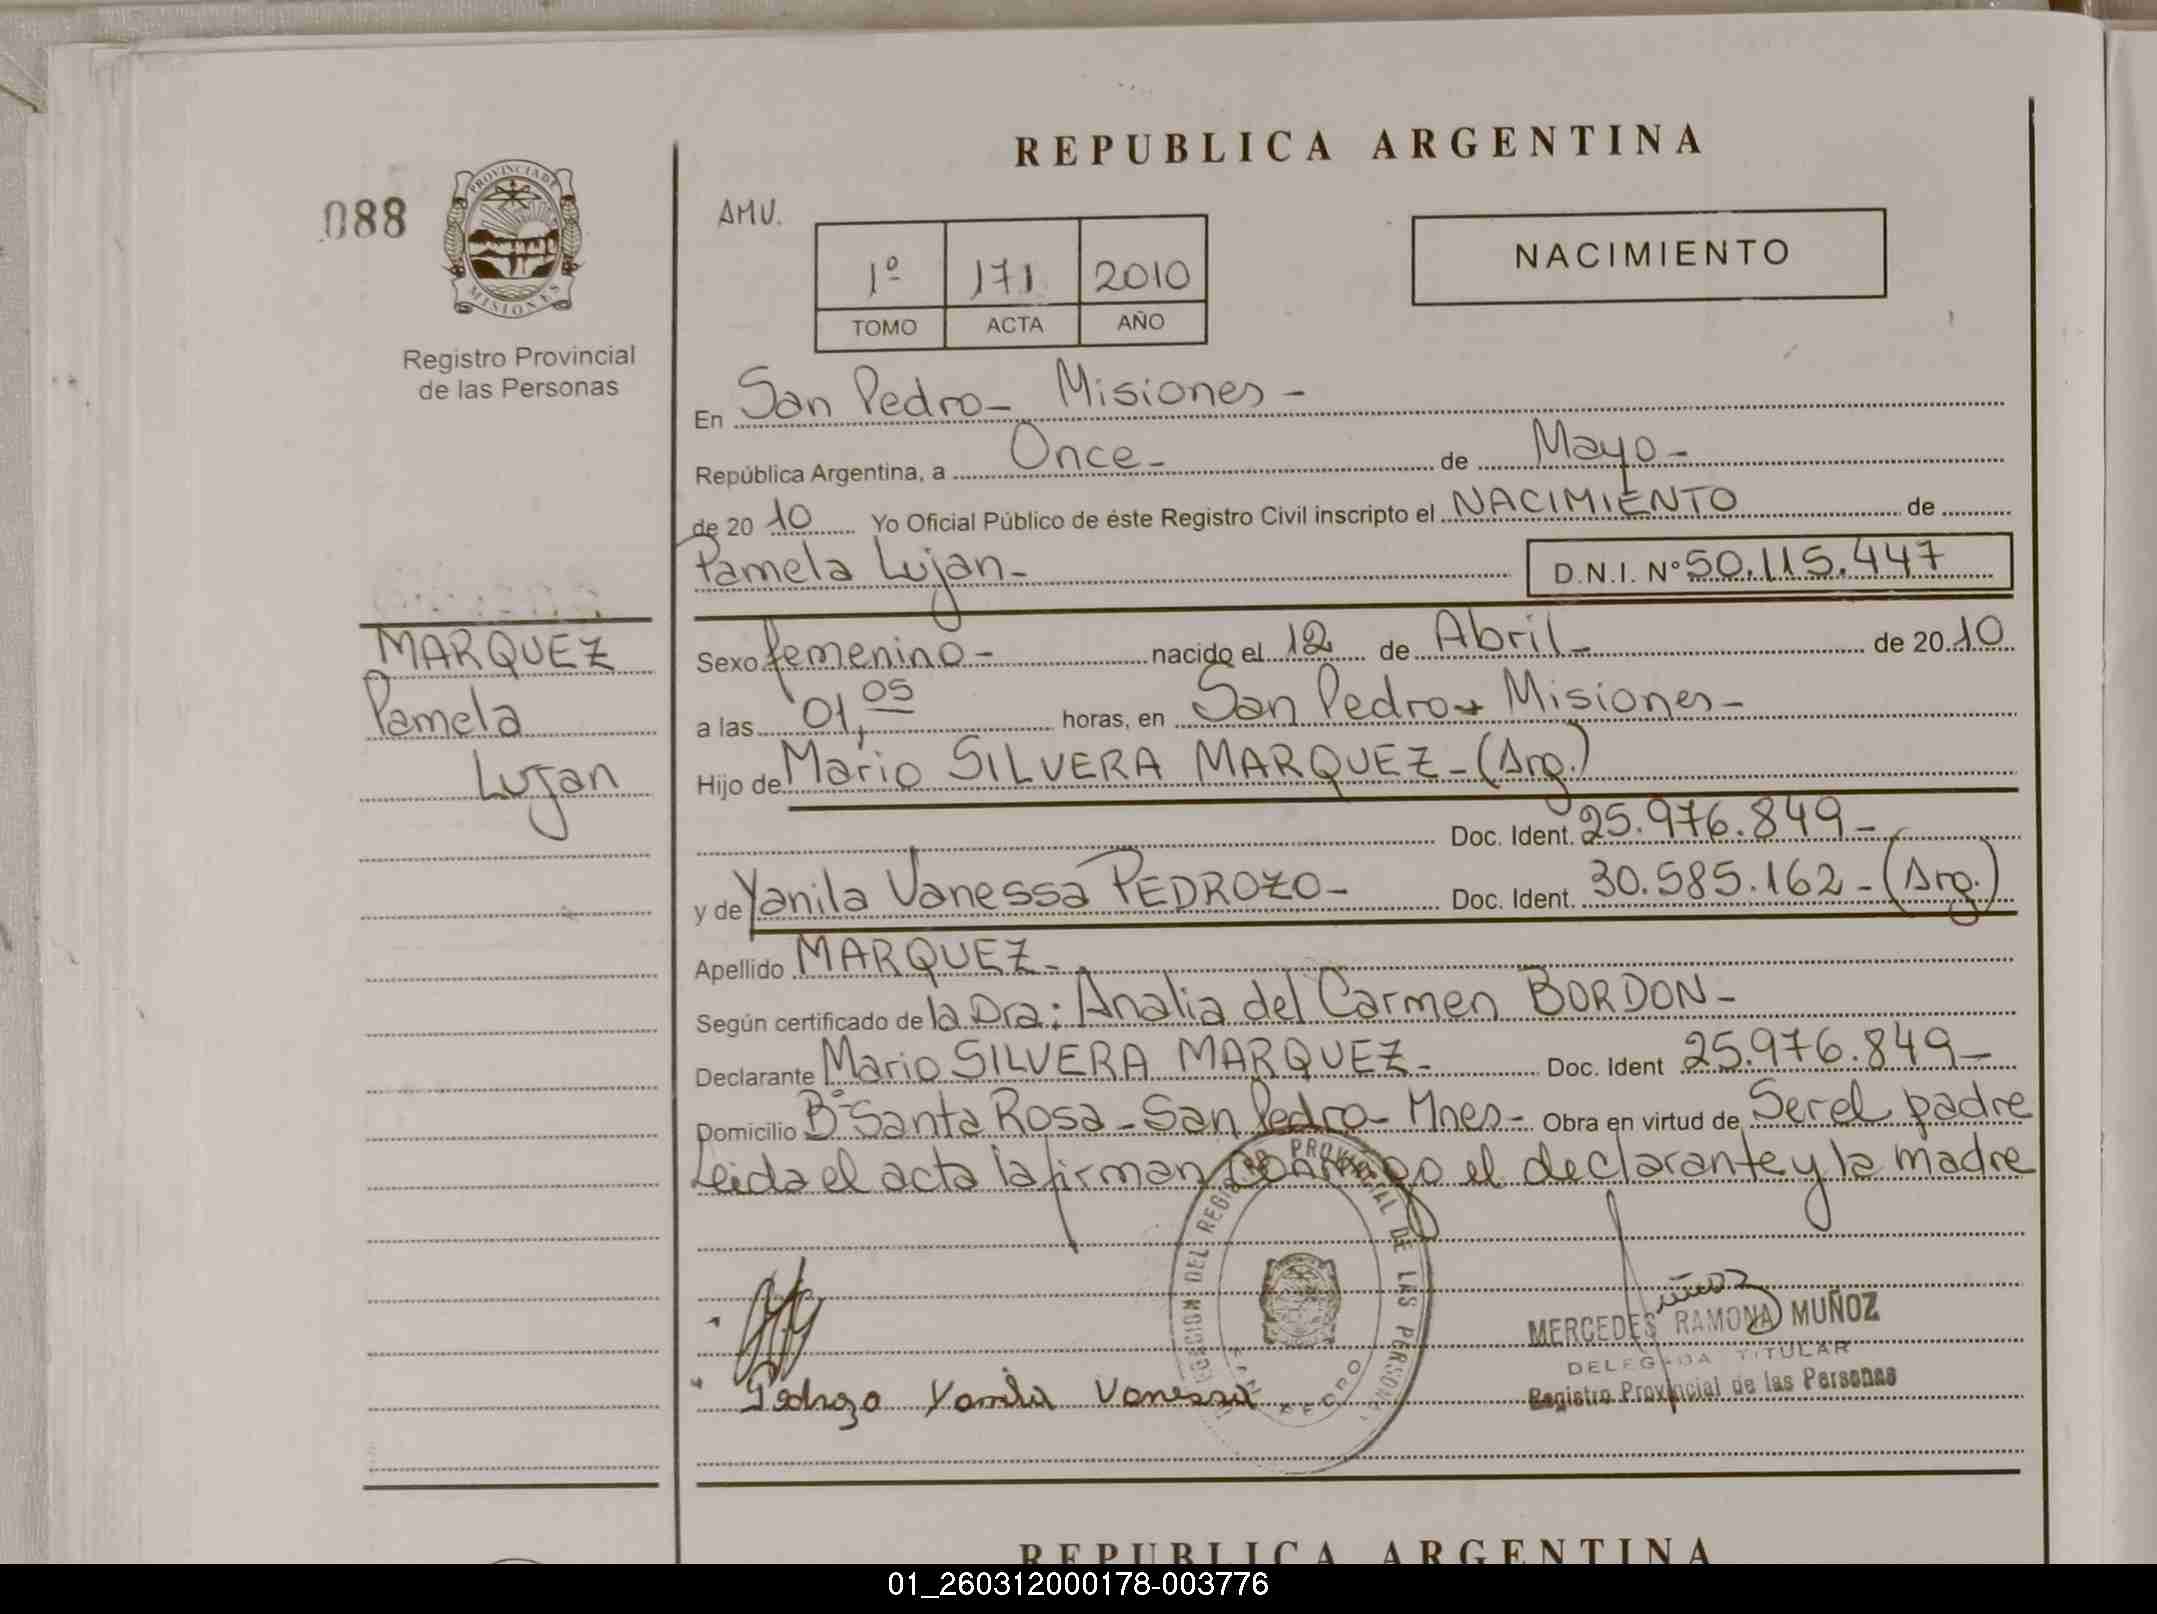 REPUBLICA ARGENTINA
088
PROVINCIA DE
MISIONES
Registro Provincial
de las Personas
AMU.
1º 171 2010
TOMO ACTA AÑO
NACIMIENTO
En San Pedro - Misiones -
República Argentina, a Once - de Mayo -
de 20 10 Yo Oficial Público de éste Registro Civil inscripto el NACIMIENTO de
Pamela Lujan - D.N.I. Nº 50.115.447
MARQUEZ
Pamela
Lujan
Sexo femenino - nacido el 12 de Abril - de 20 10
a las 01,05 horas, en San Pedro - Misiones -
Hijo de Mario SILVERA MARQUEZ - (Arg.)
Doc. Ident. 25.976.849 -
y de Yanila Vanessa PEDROZO - Doc. Ident. 30.585.162 - (Arg.)
Apellido MARQUEZ -
Según certificado de la Dra: Analia del Carmen BORDON -
Declarante Mario SILVERA MARQUEZ - Doc. Ident 25.976.849 -
Domicilio Bº Santa Rosa - San Pedro - Mnes - Obra en virtud de Ser el padre
Leida el acta la firman conmigo el declarante y la madre
DEL REGISTRO PROVINCIAL DE LAS PERSONAS
SAN PEDRO
Muñoz
MERCEDES RAMONA MUÑOZ
DELEGADA TITULAR
Registro Provincial de las Personas
Pedrozo Yanila Vanessa
REPUBLICA ARGENTINA
01_260312000178-003776